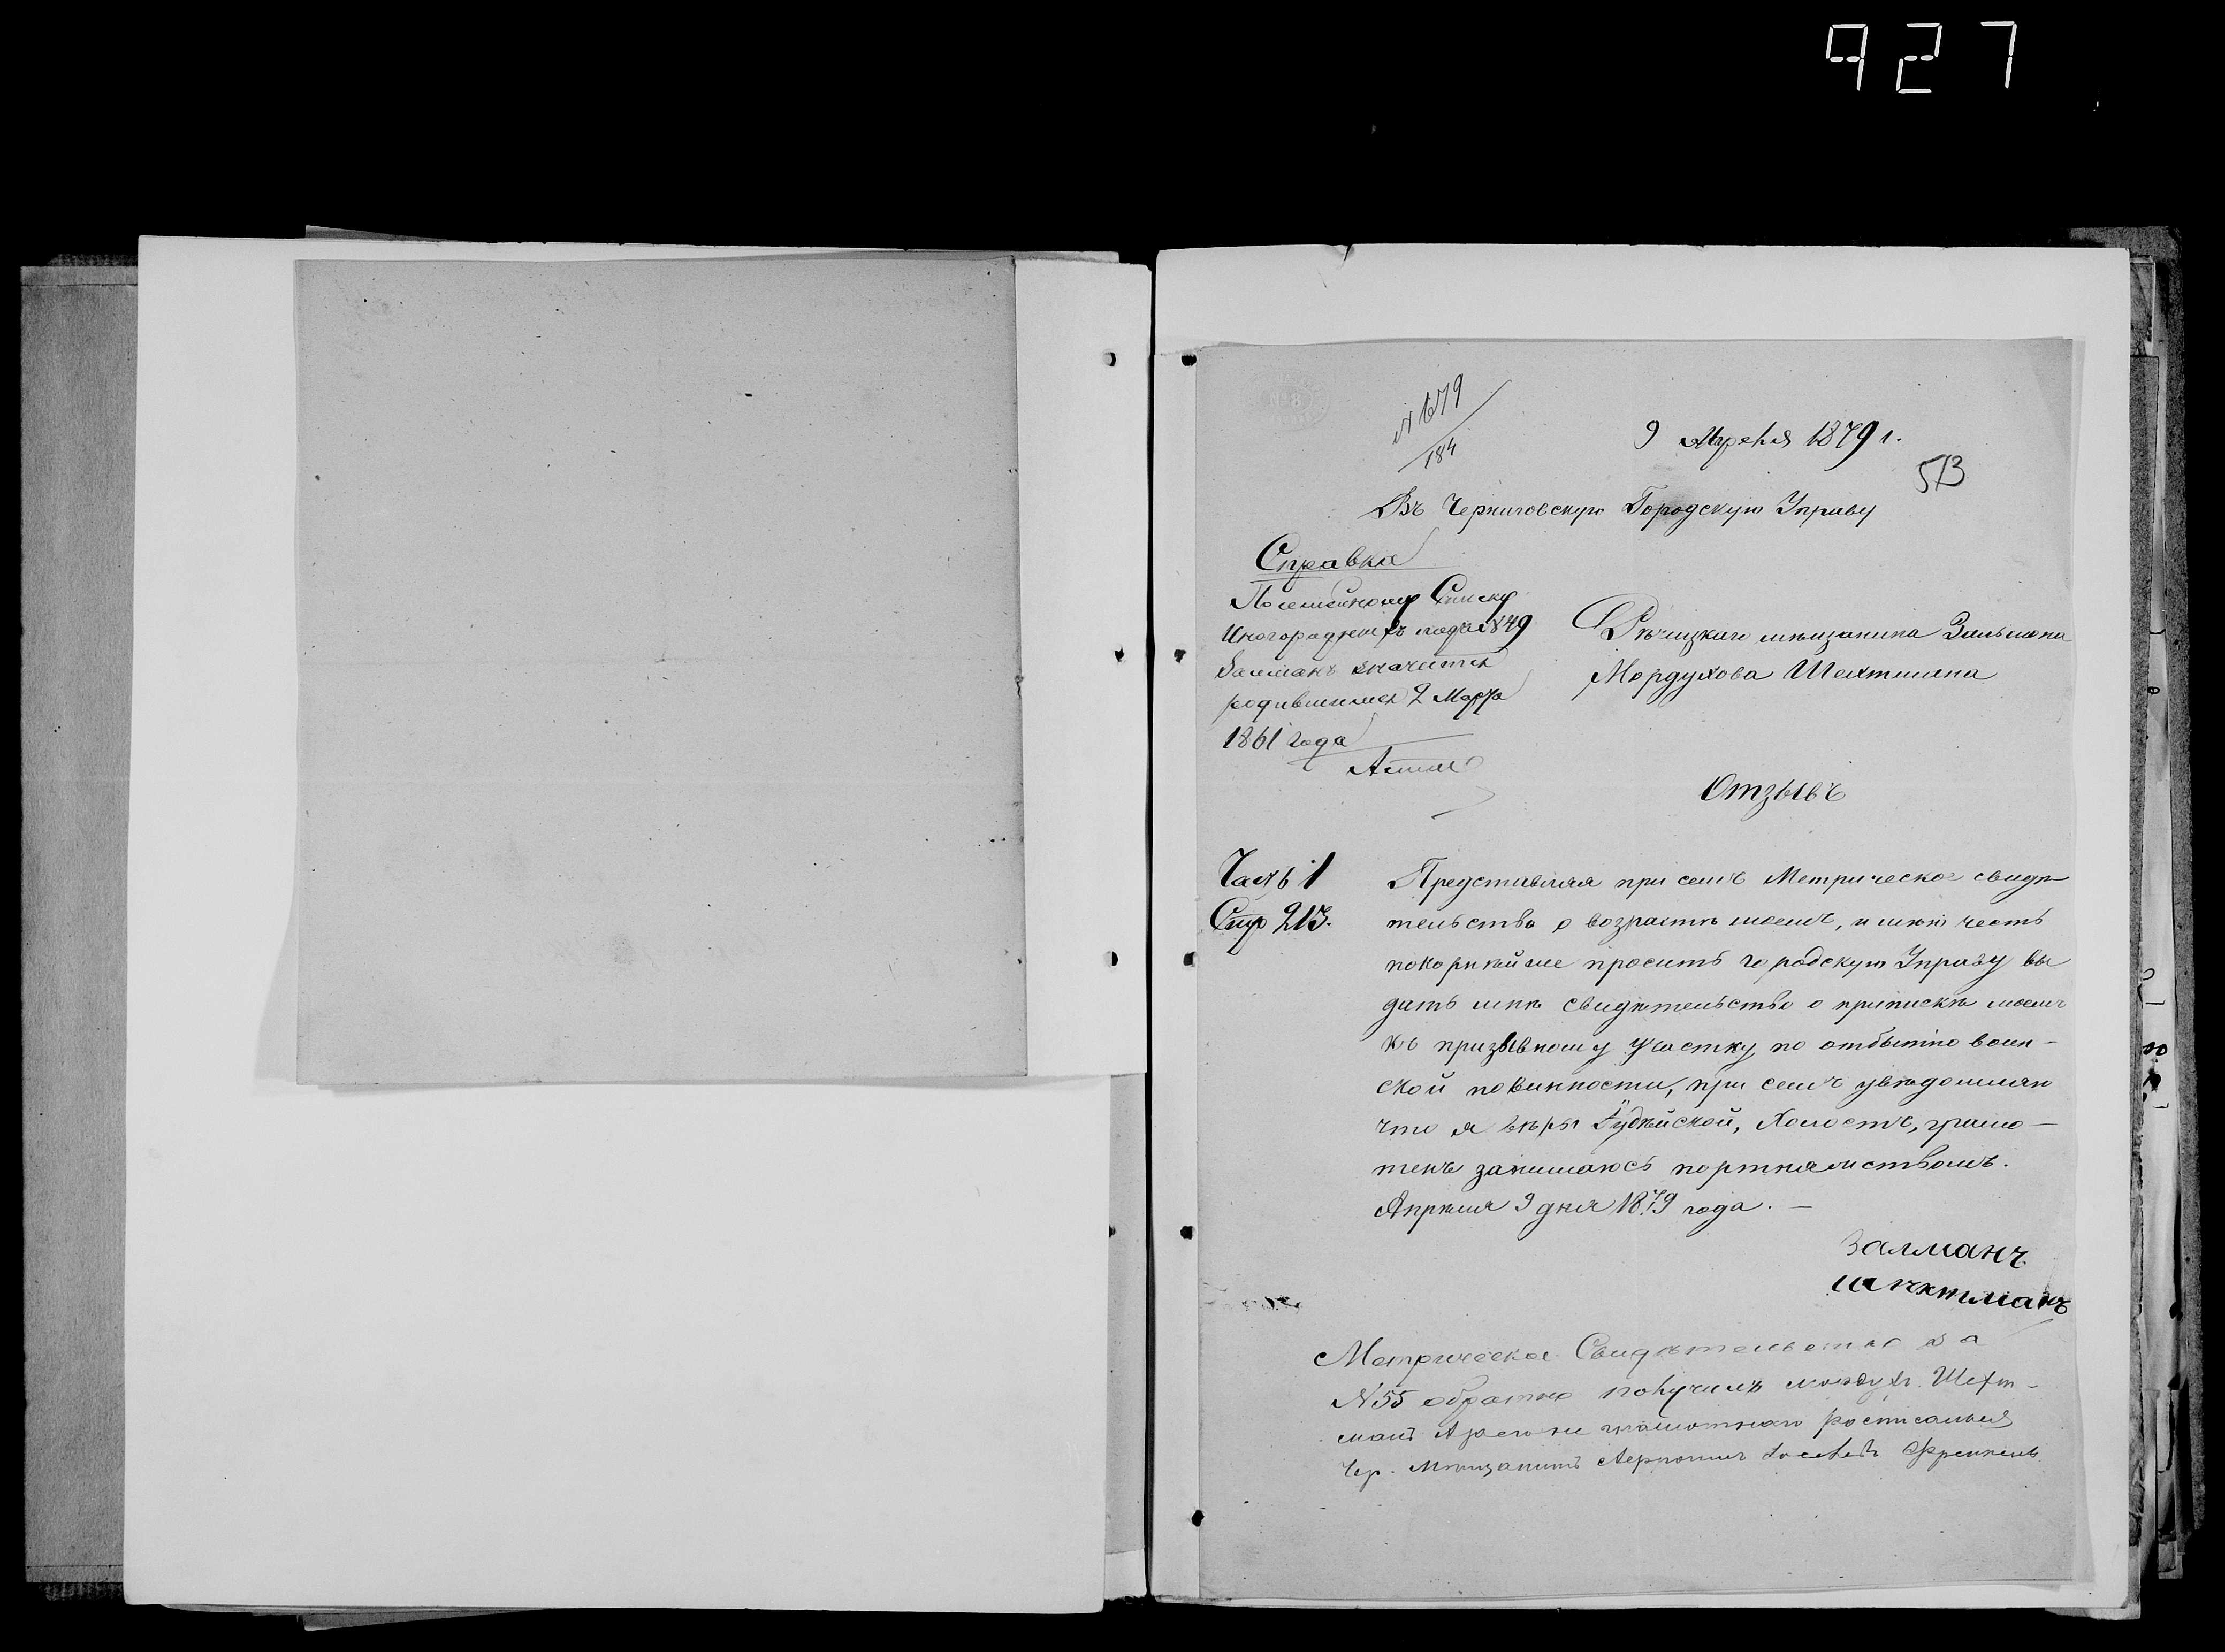 927
№ 679
184
9 Апрѣля 1879 г.
513
Въ Черниговскую Городскую Управу
Справка
По семейному Списку
Иногороднихъ подъ № 849
Залманъ значится
родившимся 2 Марта
1861 года
Рѣчицкаго мѣщанина Зальмана
Мордухова Шехтмана
Отзывъ
Часть 1
Стр 213.
Представляя при семъ Метрическое свидѣ
тельство о возрастѣ моемъ, имѣю честь
покорнѣйше просить городскую Управу вы
дать мнѣ свидѣтельство о припискѣ моемъ
къ призывному участку по отбытію воин-
ской повинности, при семъ увѣдомляю
что я вѣры Іудѣйской, Холостъ, грамо-
тенъ занимаюсь портняжествомъ.
Апрѣля 9 дня 1879 года. -
Залманъ
Шѣхтманъ
Метрическое Свидѣтельство за
№ 55 обратно получилъ Мордухъ Шехт-
манъ А за его не грамотнаго росписался
Чер. Мѣщанинъ Френкель